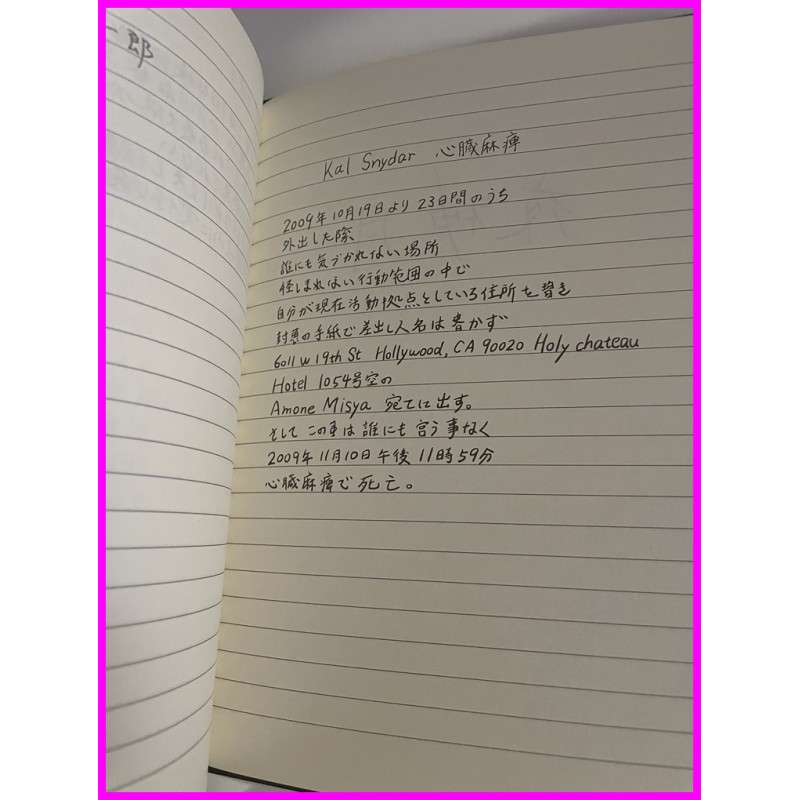 一郎
Kal Snydar 心臓麻痺
2009年10月19日より 23日間のうち
外出した際
誰にも気づかれない場所
怪しまれない行動範囲の中で
自分が現在活動拠点としている住所を書き
封書の手紙で差出し人名は書かず
6011 W 19th St Hollywood, CA 90020 Holy chateau
Hotel 1054号室の
Amone Misya 宛てに出す。
そして この事は誰にも言う事なく
2009年11月10日 午後11時59分
心臓麻痺で死亡。